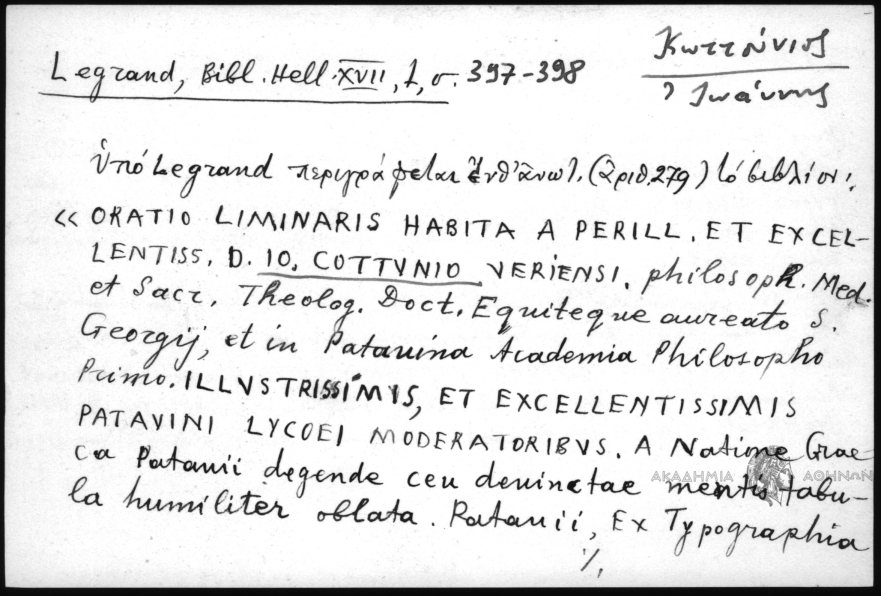 Κωττούνιος
Ἰωάννης
Legrand, Bibl. Hell. XVII, 1, σ. 397-398
ὑπό Legrand περιγράφεται ἐνθ' ἄνωτ. (ἀριθ. 279) τό βιβλίον:
« ORATIO LIMINARIS HABITA A PERILL. ET EXCEL-
LENTISS. D. IO. COTTVNIO VERIENSI, philosoph. Med.
et Sacr. Theolog. Doct. Equiteque aureato S.
Georgij, et in Patauina Academia Philosopho
Primo. ILLVSTRISSIMIS, ET EXCELLENTISSIMIS
PATAVINI LYCOEI MODERATORIBVS. A Natione Grae-
ca Patauii degende ceu deuinctae mentis tabu-
la humiliter oblata. Patauii, Ex Typographia
·/.
ΑΚΑΔΗΜΙΑ ΑΘΗΝΩΝ